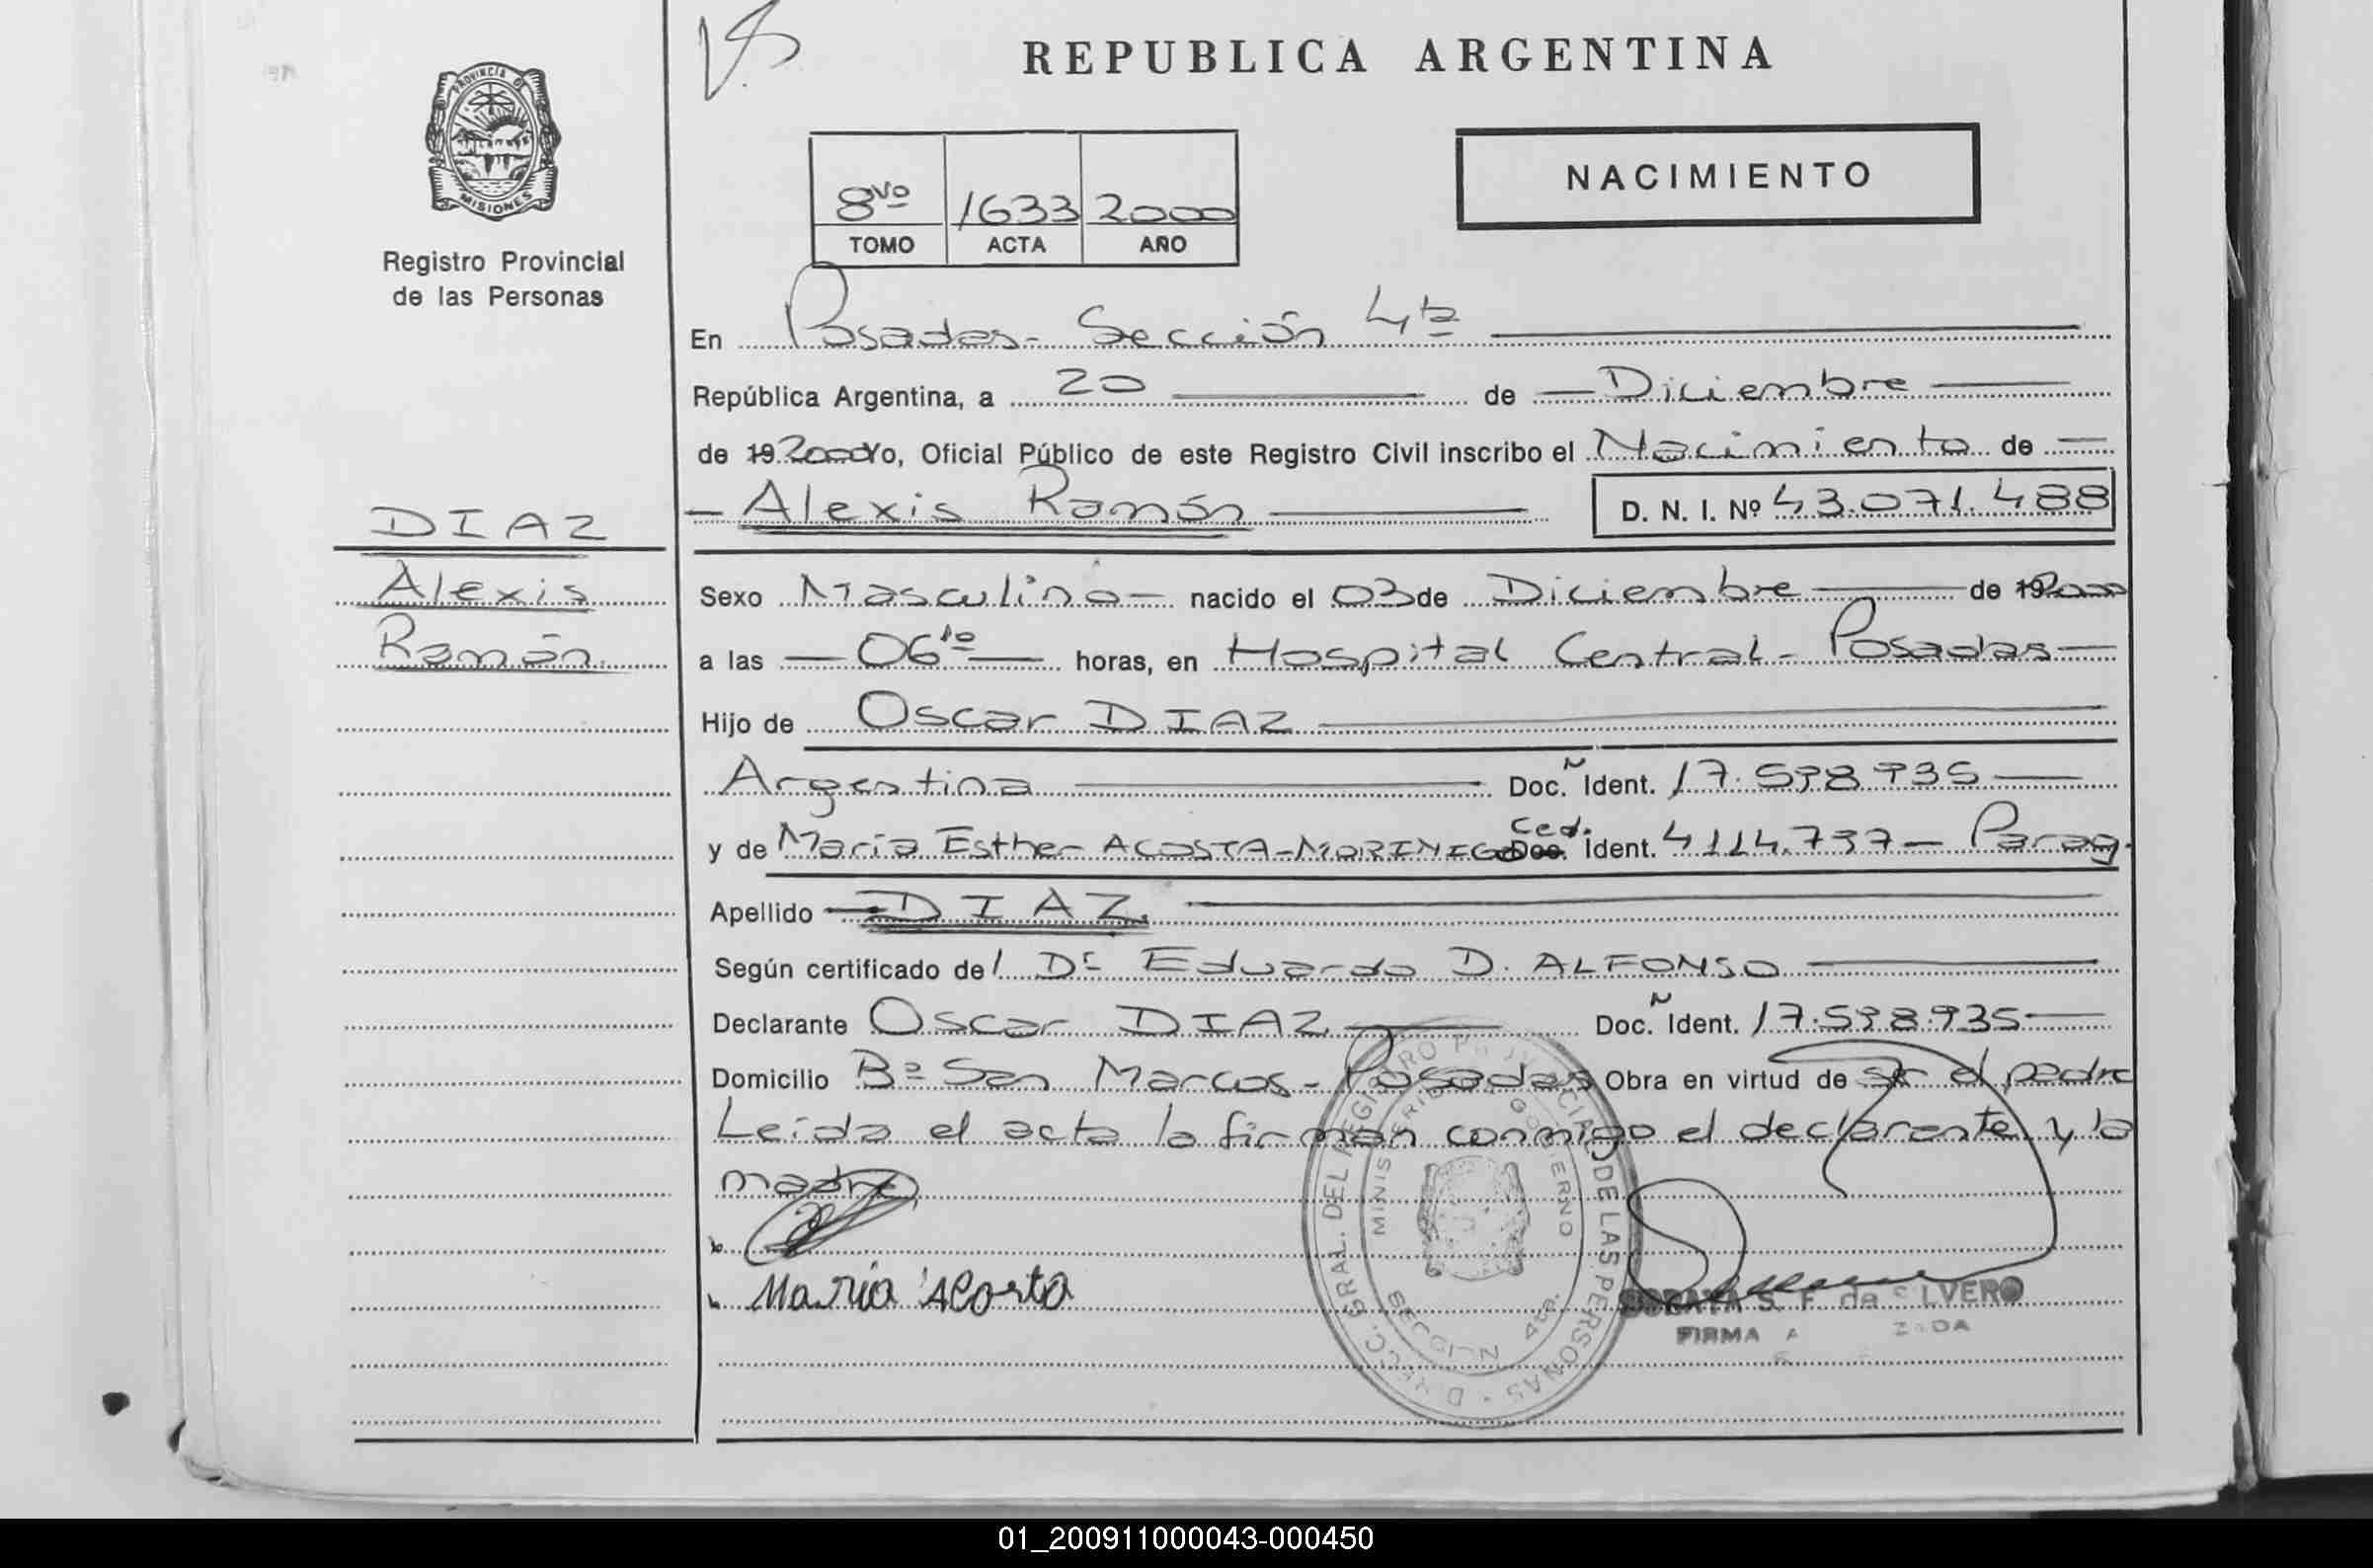 REPUBLICA ARGENTINA
PROVINCIA DE
MISIONES
Registro Provincial
de las Personas
8vo 1633 2000
TOMO ACTA AÑO
NACIMIENTO
En Posadas - Sección 4ta
República Argentina, a 20 de Diciembre
de 19 2000 Yo, Oficial Público de este Registro Civil inscribo el Nacimiento de
Alexis Ramón D. N. I. Nº 43.071.488
DIAZ
Alexis
Ramón
Sexo Masculino nacido el 03 de Diciembre de 19 2000
a las 06 10 horas, en Hospital Central - Posadas
Hijo de Oscar DIAZ
Argentina Doc. N Ident. 17.598.935
y de María Esther ACOSTA - MORINIGO Ced. Doc. Ident. 4114.737 - Parag.
Apellido DIAZ
Según certificado del Dr Eduardo D. ALFONSO
Declarante Oscar DIAZ Doc. N Ident. 17.598.935
Domicilio Bº San Marcos - Posadas Obra en virtud de ser el padre
Leída el acta la firman conmigo el declarante y la
madre
María Acosta
GRAL. DEL REGISTRO DE LAS PERSONAS
GOBIERNO
SECCION 4ta.
S. F. de SILVERO
FIRMA
01_200911000043-000450